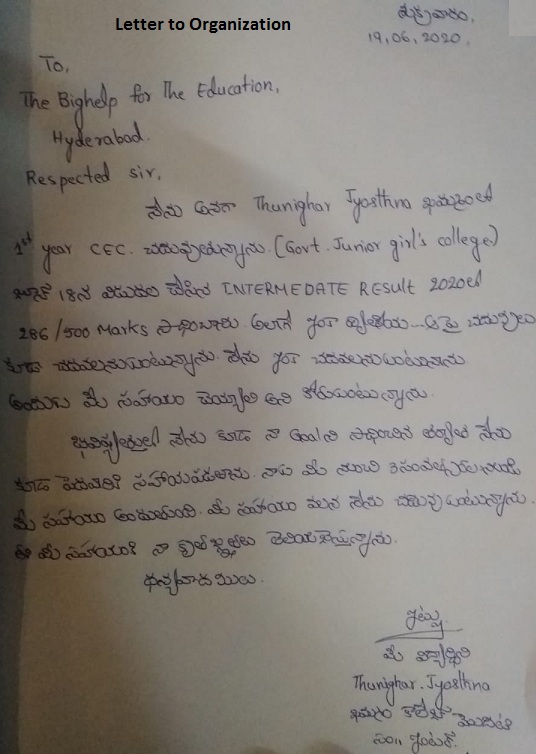 Letter to Organization
శుక్రవారం,
19,06,2020,
To,
The Bighelp for The Education,
Hyderabad.
Respected sir,
నేను అనగా Thunighar Jyosthna ఖమ్మంలో
1st year CEC. చదువుతున్నాను. (Govt. Junior girl's college)
జూన్ 18న విడుదల చేసిన INTERMEDATE RESULT 2020లో
286/500 Marks సాధించాను. అలాగే ఇంకా ద్వితీయ... ఆ పై చదువులు
కూడా చదవాలనుకుంటున్నాను. నేను ఇంకా చదవాలనుకుంటున్నాను
అందుకు మీ సహాయం చెయ్యాలి అని కోరుకుంటున్నాను.
భవిష్యత్తులో నేను కూడా నా Goalని సాధించిన తర్వాత నేను
కూడా పేదవారికి సహాయపడతాను. నాకు మీ నుంచి 3సంవత్సరాలనుండి
మీ సహాయం అందుతుంది. మీ సహాయం వలన నేను చదువుకుంటున్నాను.
ఈ మీ సహాయంకి నా కృతజ్ఞతలు తెలియజేస్తున్నాను.
ధన్యవాదములు.
ఇట్లు
మీ విద్యార్థిని
Thunighar.Jyosthna
ఖమ్మం కాలేజ్ మొదటి
సం॥ ఇంటర్